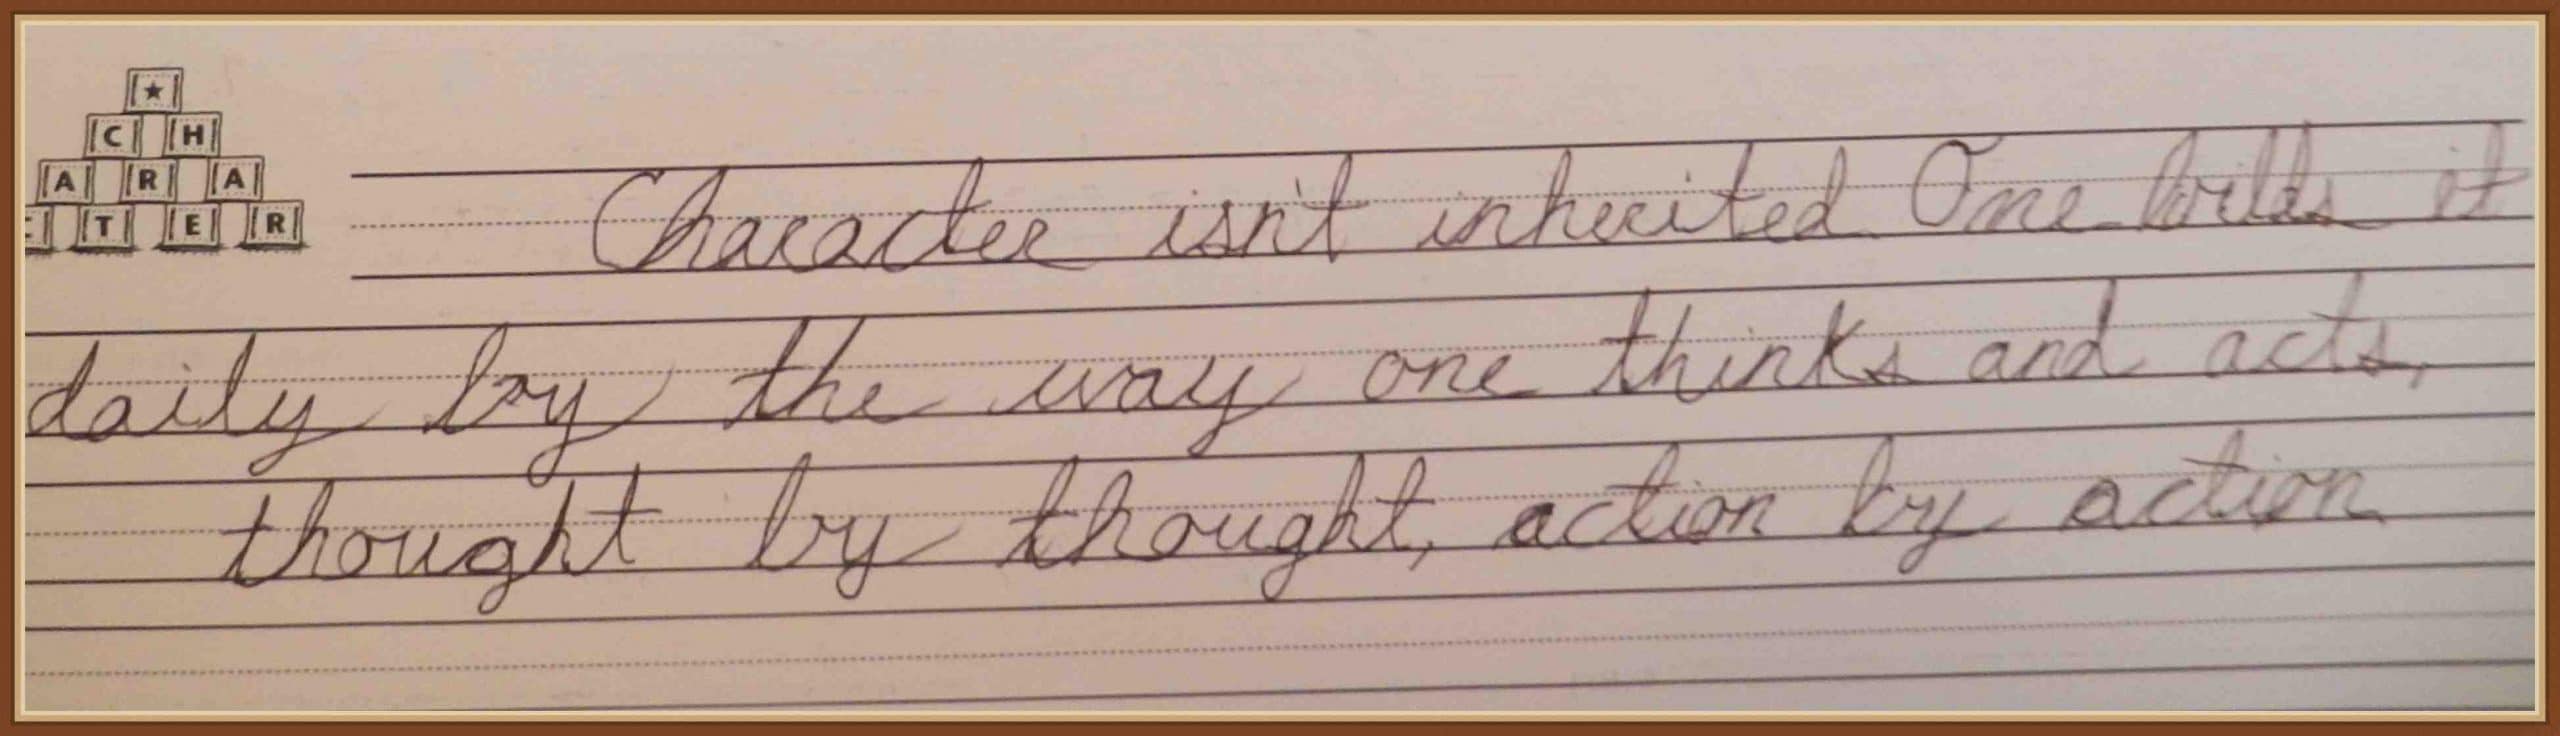 ★
C H
A R A
C T E R
Character isn't inherited One builds it
daily by the way one thinks and acts,
thought by thought, action by action